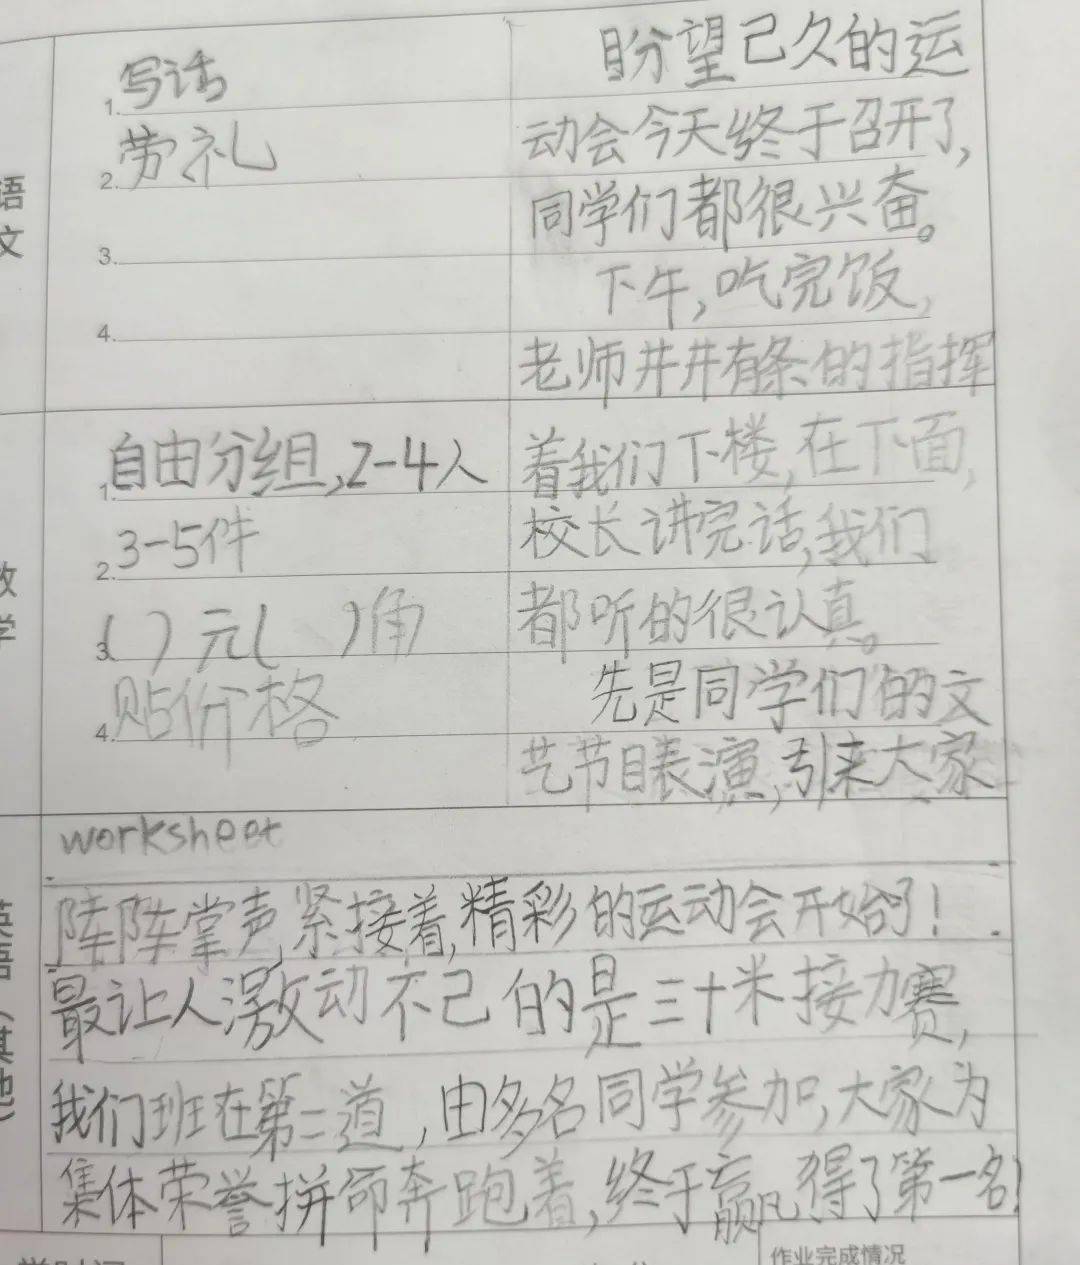 语文
1. 写话
2. 劳礼
3.
4.
盼望己久的运
动会今天终于召开了,
同学们都很兴奋。
下午,吃完饭,
老师井井有条的指挥
数学
1. 自由分组,2-4人
2. 3-5件
3. ( )元( )角
4. 贴价格
着我们下楼,在下面,
校长讲完话,我们
都听的很认真。
先是同学们的文
艺节目表演,引来大家
英语(其他)
worksheet
阵阵掌声,紧接着,精彩的运动会开始了!
最让人激动不己的是三十米接力赛,
我们班在第二道,由多名同学参加,大家为
集体荣誉拼命奔跑着,终于赢得了第一名!
作业完成情况